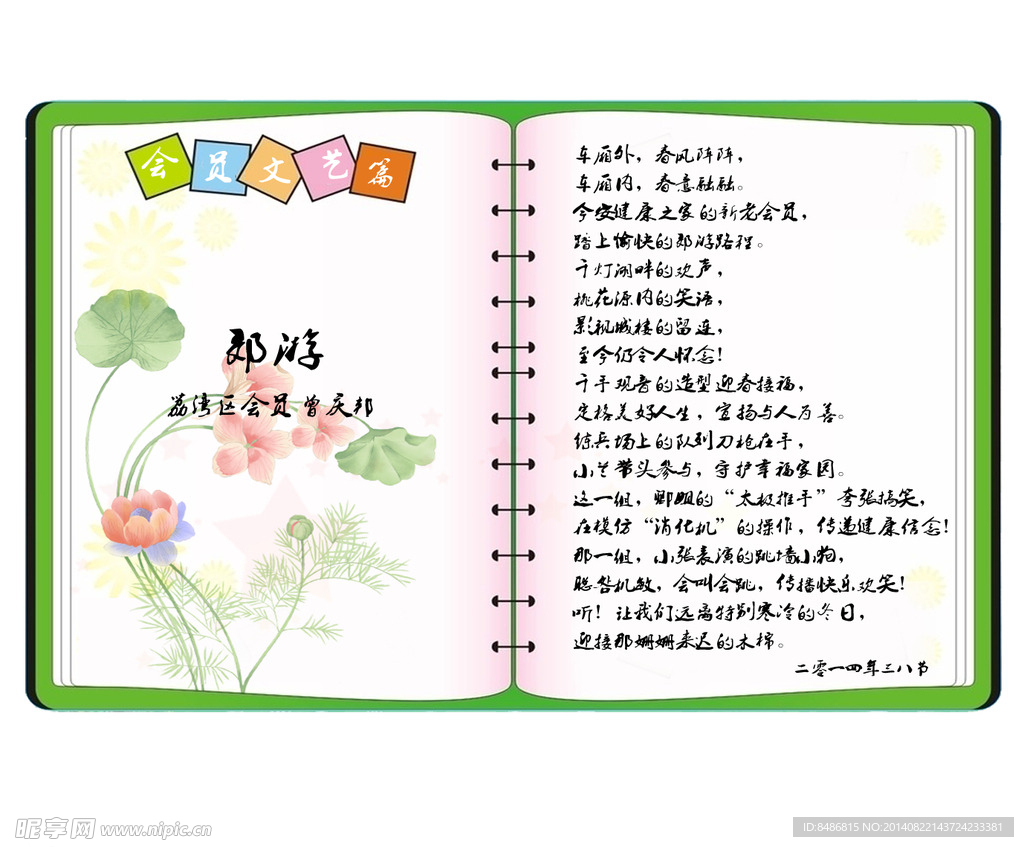 会员文艺篇
郊游
荔湾区会员曾庆邦
车厢外，春风阵阵，
车厢内，春意融融。
今安健康之家的新老会员，
踏上愉快的郊游路程。
千灯湖畔的欢声，
桃花源内的笑语，
影视城楼的留连，
至今仍令人怀念！
千手观音的造型迎春接福，
定格美好人生，宣扬与人为善。
练兵场上的队列刀枪在手，
小兰带头参与，守护幸福家园。
这一组，卿姐的“太极推手”夸张搞笑，
在模仿“消化机”的操作，传递健康信念！
那一组，小张表演的跳墙小狗，
聪咎机敏，会叫会跳，传播快乐欢笑！
听！让我们远离特别寒冷的冬日，
迎接那姗姗来迟的木棉。
二零一四年三八节
昵享网 www.nipic.cn
ID:8486815 NO:20140822143724233381